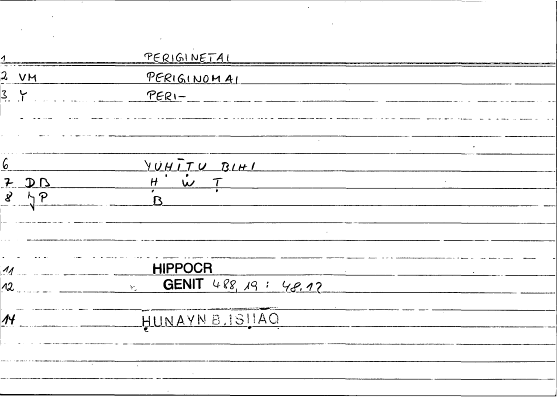 1 PERIGINETAI
2 VM PERIGINOMAI
3 Y PERI-
6 YUḤĪṬU BIHI
7 DB Ḥ W Ṭ
8 JP B
11 HIPPOCR
12 GENIT 488,19 : 48.12
14 ḤUNAYN B. ISḤAQ